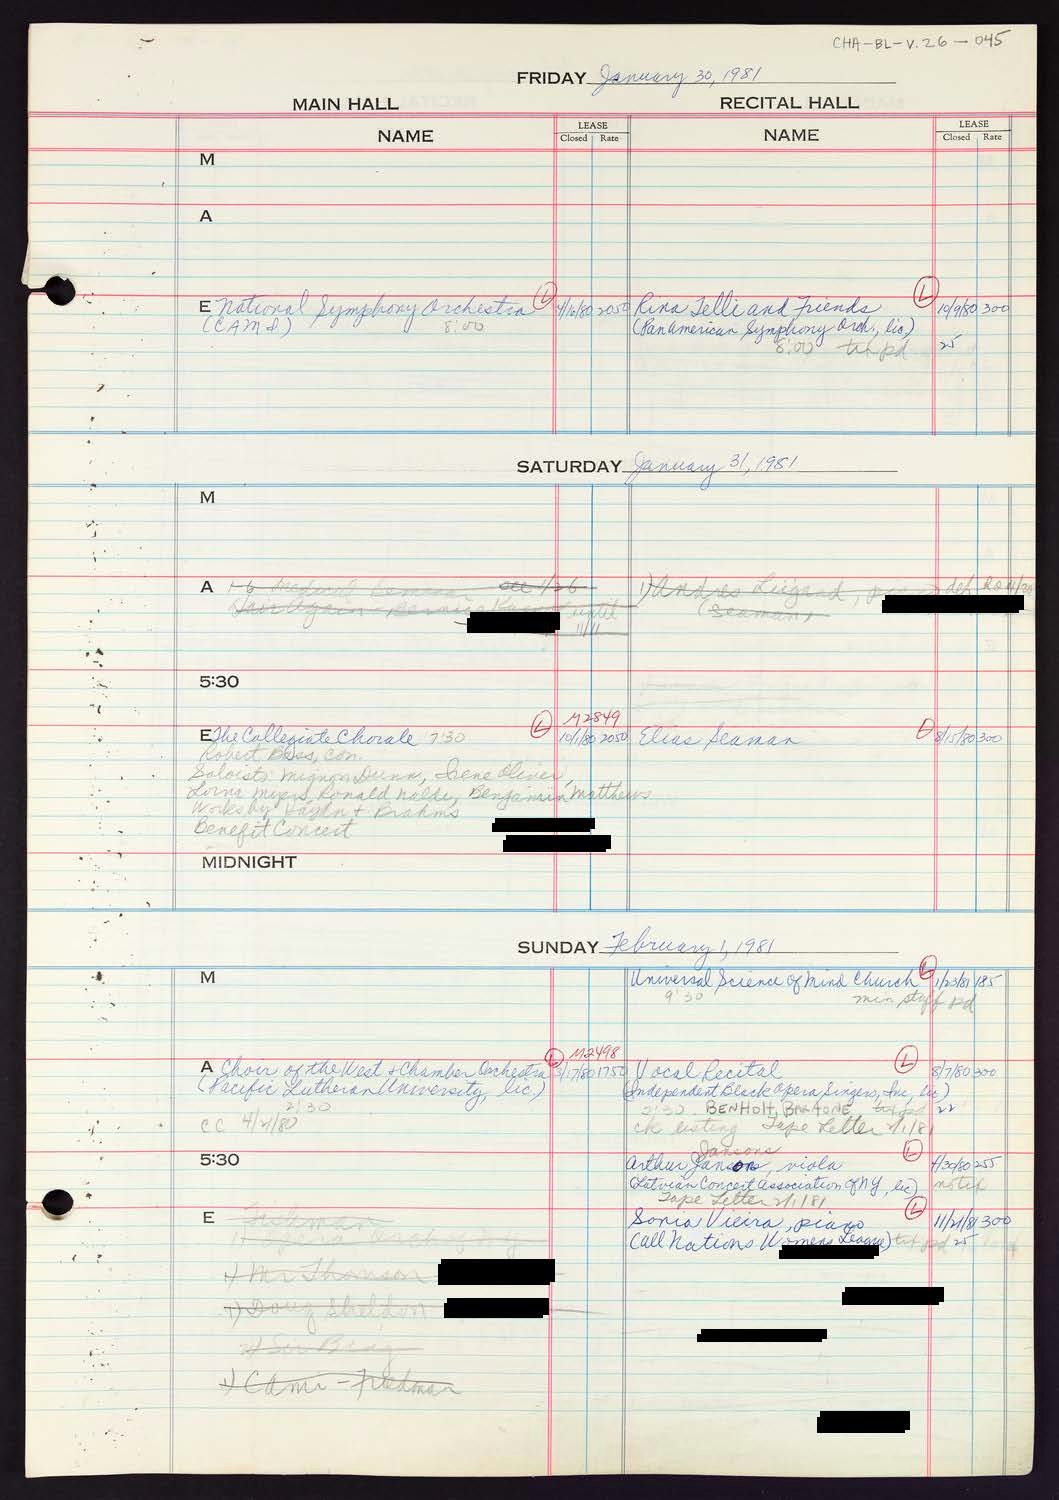 CHA-BL-V.26-045
FRIDAY January 30, 1981
MAIN HALL RECITAL HALL
NAME LEASE Closed Rate NAME LEASE Closed Rate
M
A
E National Symphony Orchestra L 4/16/80 2050 Rina Telli and Friends L 10/9/80 300
(CAMI) 8:00 (PanAmerican Symphony Orch., lic.)
8:00 pd 25
SATURDAY January 31, 1981
M
A 1-6 1/26 1) Andres
until (Seaman)
11/11
5:30
L M2849
E The Collegiate Chorale 7:30 10/1/80 2050 Elias Seaman L 8/15/80 300
Robert Bass, con.
Soloists: Mignon Dunn, Irene Oliver,
Lorna Myers, Ronald Naldi, Benjamin Matthews
Works by Haydn & Brahms
Benefit Concert
MIDNIGHT
SUNDAY February 1, 1981
M Universal Science of Mind Church L 1/23/81 185
9:30 min staff pd
L M2498
A Choir of the West & Chamber Orchestra 3/17/80 1750 Vocal Recital L 8/7/80 300
(Pacific Lutheran University, lic.) (Independent Black Opera Singers, Inc, lic)
2:30 2:30 BEN HOLT, BARITONE, pd 22
CC 4/21/80 ck listing Tape Letter 2/1/81
Jansons
5:30 Arthur Jansons, viola L 4/30/80 255
(Latvian Concert Association of NY, lic)
Tape Letter 2/1/81
E Fishman Sonia Vieira, piano L 11/21/81 300
(All Nations Womens League) pd 25
1) Mr Thomson
1) Doug Sheldon
1) Cami - Friedman